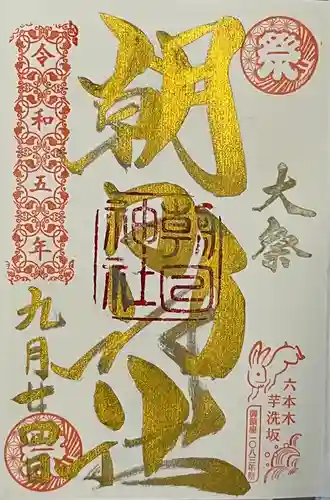 祭
大祭
六本木
芋洗坂。
御鎮座一〇八三年
朝日神社
朝日
神社
令和五年
九月廿四日